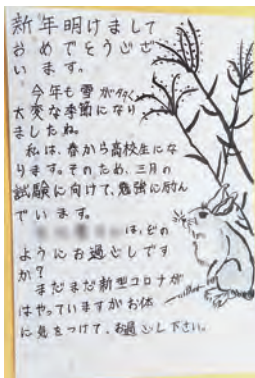 新年明けまして
おめでとうござ
います。
今年も雪が多く
大変な季節になり
ましたね。
私は、春から高校生にな
ります。そのため、三月の
試験に向けて、勉強に励ん
でいます。
は、どの
ようにお過ごしです
か?
まだまだ新型コロナが
はやっていますがお体
に気をつけて、お過ごし下さい。